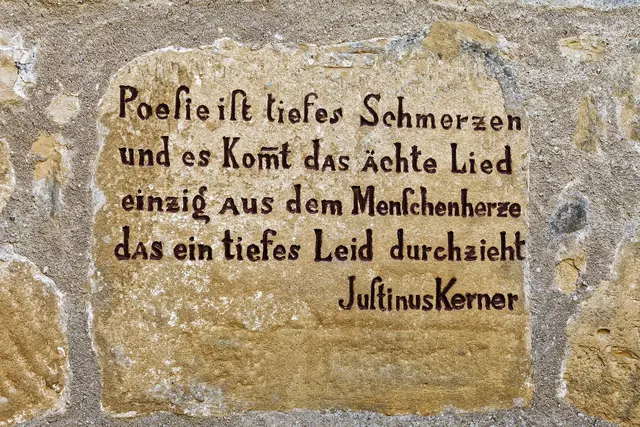 Poeſie iſt tiefes Schmerzen
und es Kom̅t das ächte Lied
einzig aus dem Menſchenherze
das ein tiefes Leid durchzieht
Juſtinus Kerner